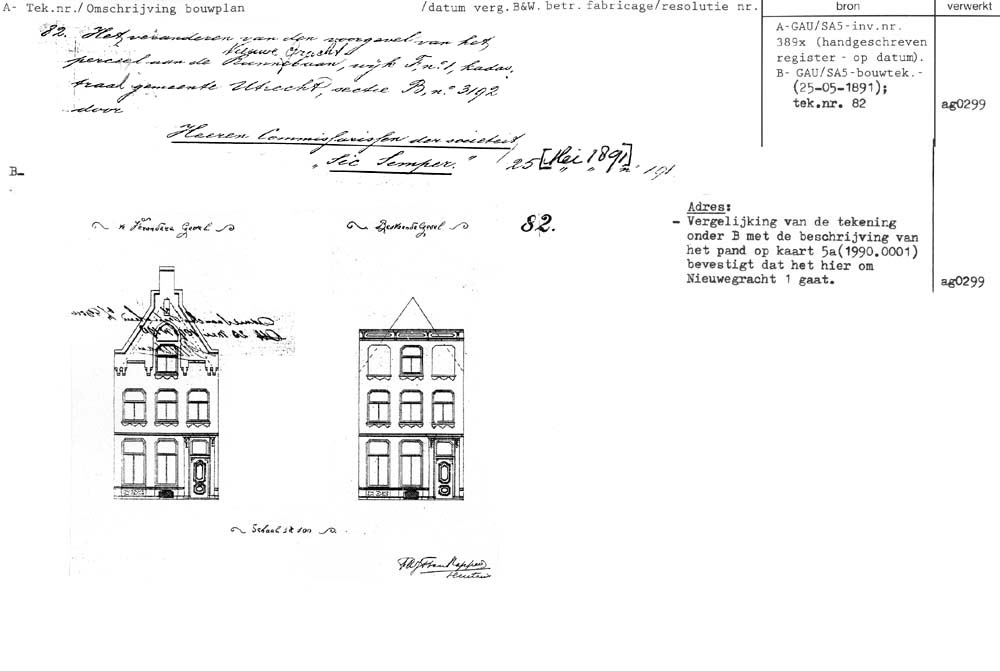 A- Tek.nr./Omschrijving bouwplan /datum verg.B&W. betr. fabricage/resolutie nr. bron verwerkt
82. Het veranderen van den voorgevel van het
Nieuwe Gracht
perceel aan de Runnebaan, wijk F, nº 1, kadas-
traal gemeente Utrecht, sectie B, nº 3192
door
Heeren Commissarissen der societeit
„Sic Semper." 25 [Mei 1891]
A-GAU/SA5-inv.nr.
389x (handgeschreven
register - op datum).
B- GAU/SA5-bouwtek.-
(25-05-1891);
tek.nr. 82 ag0299
B-
te Verandern Gevel
Bestaande Gevel
82.
Adres:
- Vergelijking van de tekening
onder B met de beschrijving van
het pand op kaart 5a(1990.0001)
bevestigt dat het hier om
Nieuwegracht 1 gaat. ag0299
Schaal 1 à 100